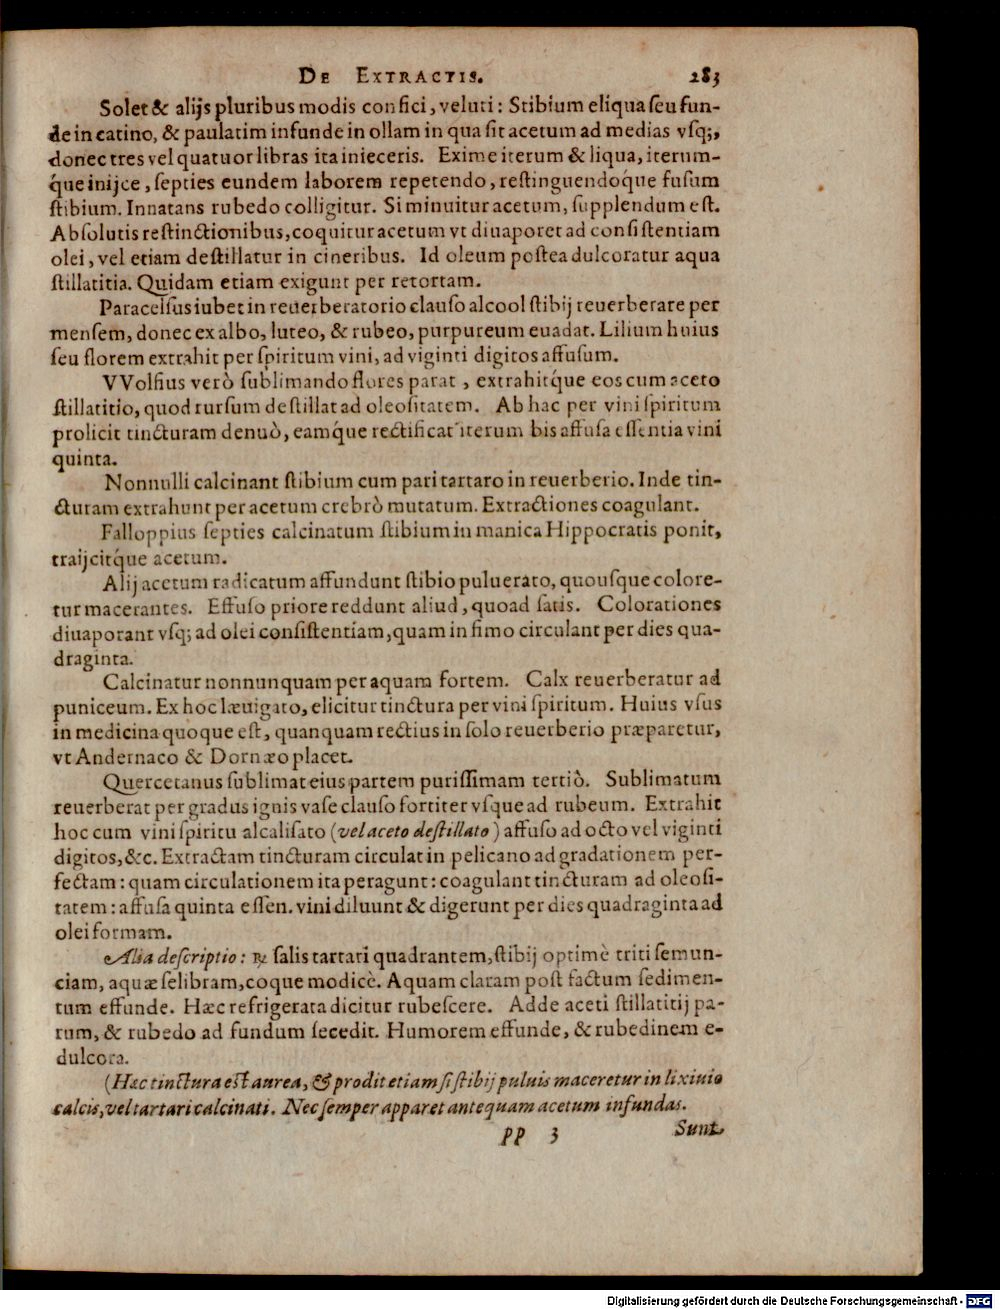 DE EXTRACTIS. 283
Solet & alijs pluribus modis confici, veluti: Stibium eliqua seu fun-
de in catino, & paulatim infunde in ollam in qua sit acetum ad medias vsq;,
donec tres vel quatuor libras ita inieceris. Exime iterum & liqua, iterum-
q́ue inijce, septies eundem laborem repetendo, restinguendoq́ue fusum
stibium. Innatans rubedo colligitur. Si minuitur acetum, supplendum est.
Absolutis restinctionibus, coquitur acetum vt diuaporet ad consistentiam
olei, vel etiam destillatur in cineribus. Id oleum postea dulcoratur aqua
stillatitia. Quidam etiam exigunt per retortam.
Paracelsus iubet in reuerberatorio clauso alcool stibij reuerberare per
mensem, donec ex albo, luteo, & rubeo, purpureum euadat. Lilium huius
seu florem extrahit per spiritum vini, ad viginti digitos affusum.
VVolfius verò sublimando flores parat, extrahitq́ue eos cum aceto
stillatitio, quod rursum destillat ad oleositatem. Ab hac per vini spiritum
prolicit tincturam denuò, eamq́ue rectificat iterum bis affusa essentia vini
quinta.
Nonnulli calcinant stibium cum pari tartaro in reuerberio. Inde tin-
cturam extrahunt per acetum crebrò mutatum. Extractiones coagulant.
Falloppius septies calcinatum stibium in manica Hippocratis ponit,
traijcitq́ue acetum.
Alij acetum radicatum affundunt stibio puluerato, quousque colore-
tur macerantes. Effuso priore reddunt aliud, quoad satis. Colorationes
diuaporant vsq; ad olei consistentiam, quam in fimo circulant per dies qua-
draginta.
Calcinatur nonnunquam per aquam fortem. Calx reuerberatur ad
puniceum. Ex hoc læuigato, elicitur tinctura per vini spiritum. Huius vsus
in medicina quoque est, quanquam rectius in solo reuerberio præparetur,
vt Andernaco & Dornæo placet.
Quercetanus sublimat eius partem purissimam tertiò. Sublimatum
reuerberat per gradus ignis vase clauso fortiter vsque ad rubeum. Extrahit
hoc cum vini spiritu alcalisato (vel aceto destillato) affuso ad octo vel viginti
digitos, &c. Extractam tincturam circulat in pelicano ad gradationem per-
fectam: quam circulationem ita peragunt: coagulant tincturam ad oleosi-
tatem: affusa quinta essen. vini diluunt & digerunt per dies quadraginta ad
olei formam.
Alia descriptio: ℞ salis tartari quadrantem, stibij optimè triti semun-
ciam, aquæ selibram, coque modicè. Aquam claram post factum sedimen-
tum effunde. Hæc refrigerata dicitur rubescere. Adde aceti stillatitij pa-
rum, & rubedo ad fundum secedit. Humorem effunde, & rubedinem e-
dulcora.
(Hæc tinctura est aurea, & prodit etiam si stibij puluis maceretur in lixiuio
calcis, vel tartari calcinati. Nec semper apparet antequam acetum infundas.
pp 3 Sunt
Digitalisierung gefördert durch die Deutsche Forschungsgemeinschaft - DFG